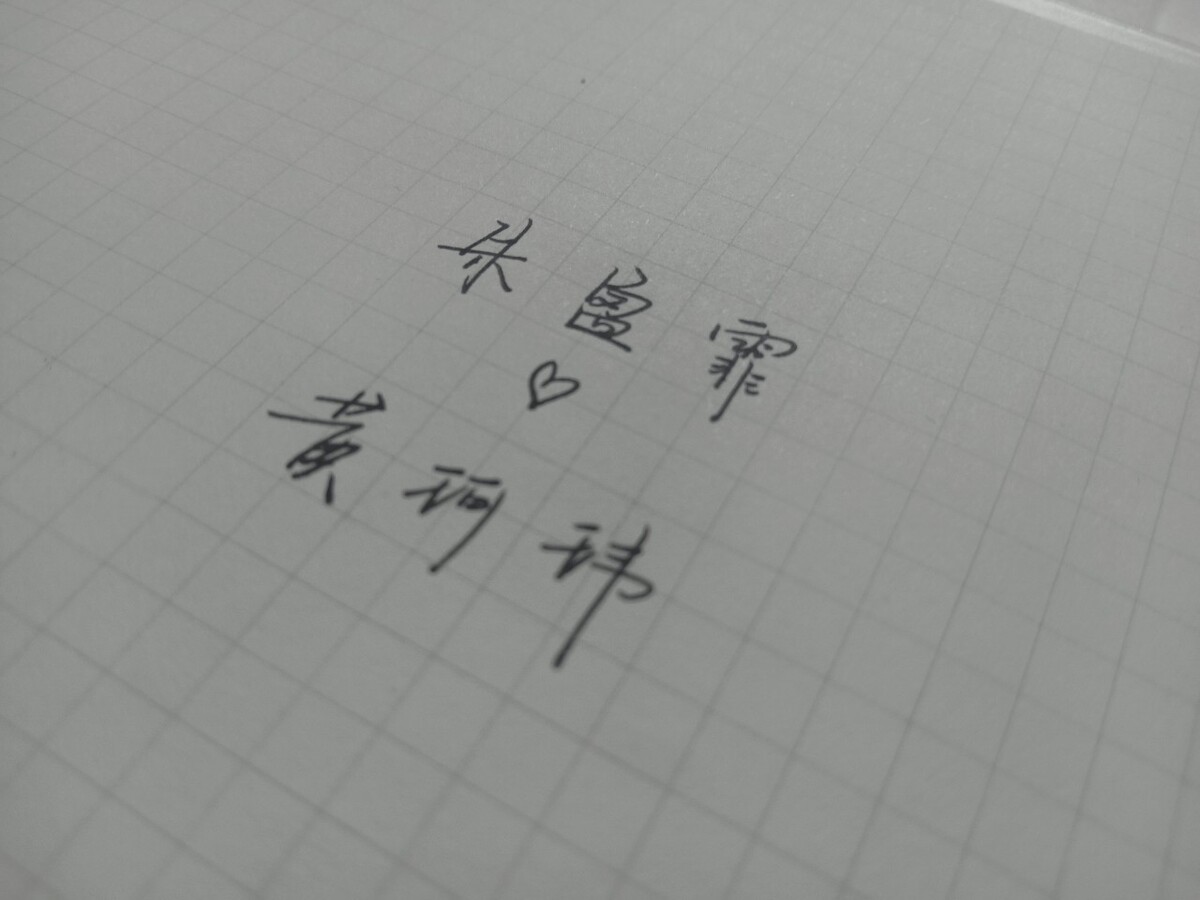 朱盈霏
♡
黄珂玮